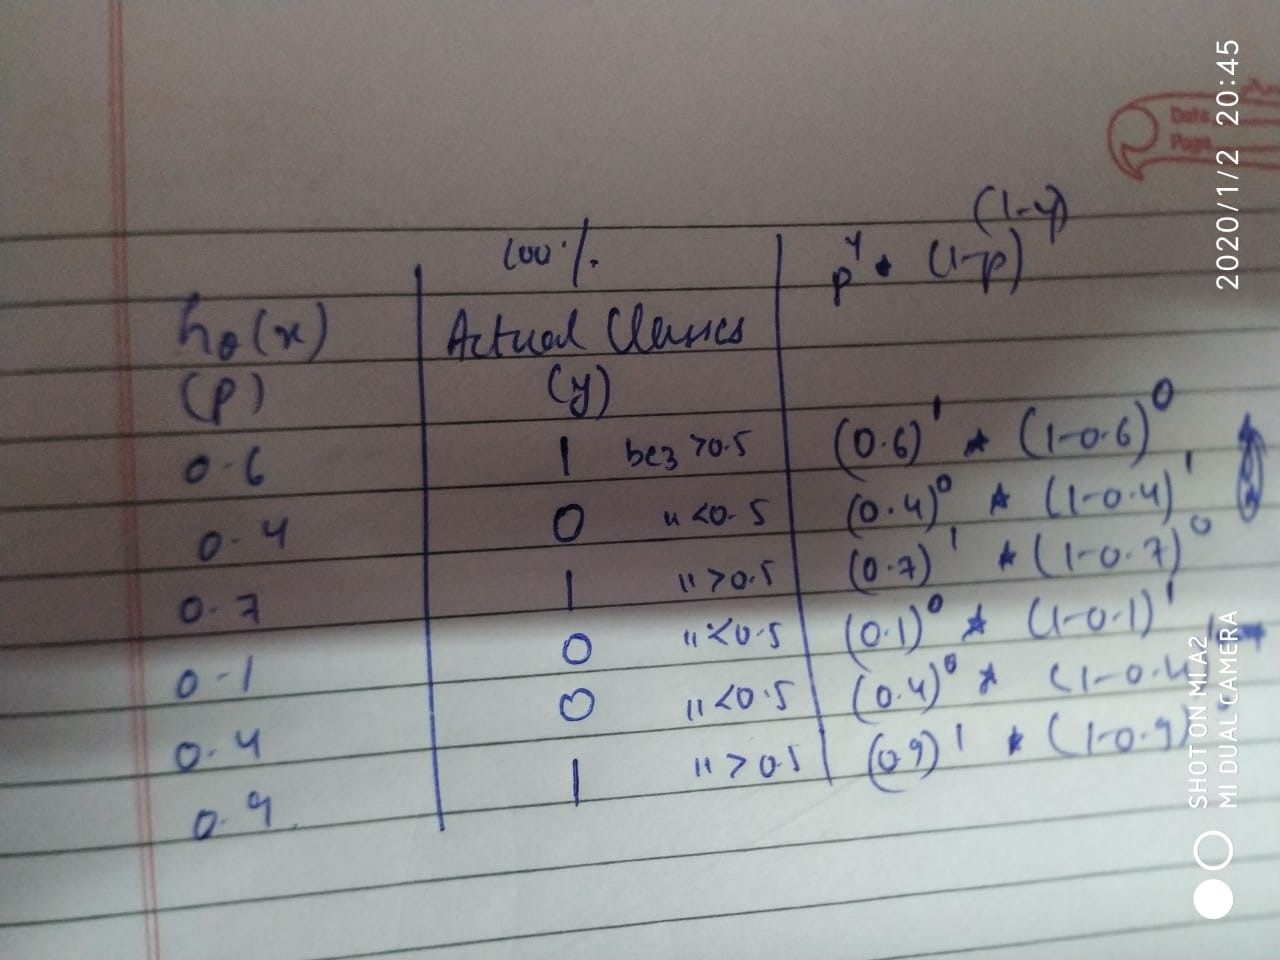 Date
Page
100%
p^y * (1-p)^(1-y)
hθ(x) Actual Classes
(p) (y)
0.6 1 bez >0.5 (0.6)^1 * (1-0.6)^0
0.4 0 " <0.5 (0.4)^0 * (1-0.4)^1
0.7 1 " >0.5 (0.7)^1 * (1-0.7)^0
0.1 0 " <0.5 (0.1)^0 * (1-0.1)^1
0.4 0 " <0.5 (0.4)^0 * (1-0.4
0.9 1 " >0.5 (0.9)^1 * (1-0.9)
2020/1/2 20:45
SHOT ON MI A2
MI DUAL CAMERA